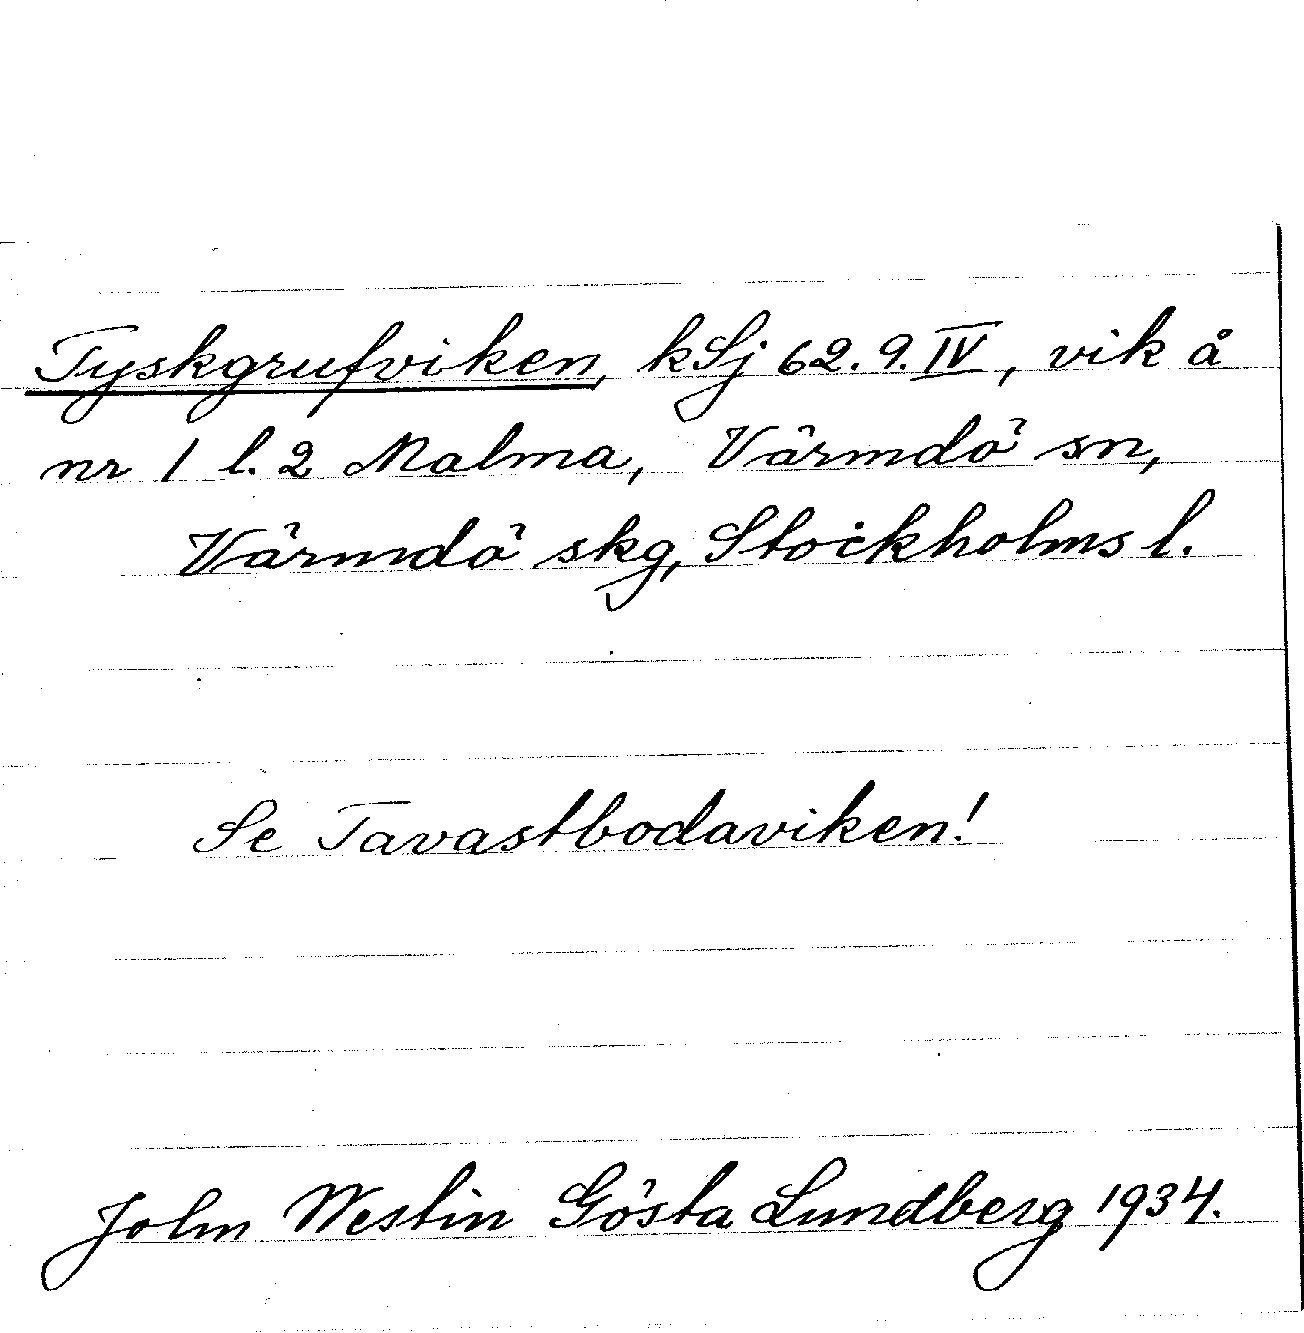 Tyskgrufviken, kSj 62.9.IV, vik å
nr 1 l. 2 Malma, Värmdö sn,
Värmdö skg, Stockholms l.
Se Tavastbodaviken!
John Westin Gösta Lundberg 1934.